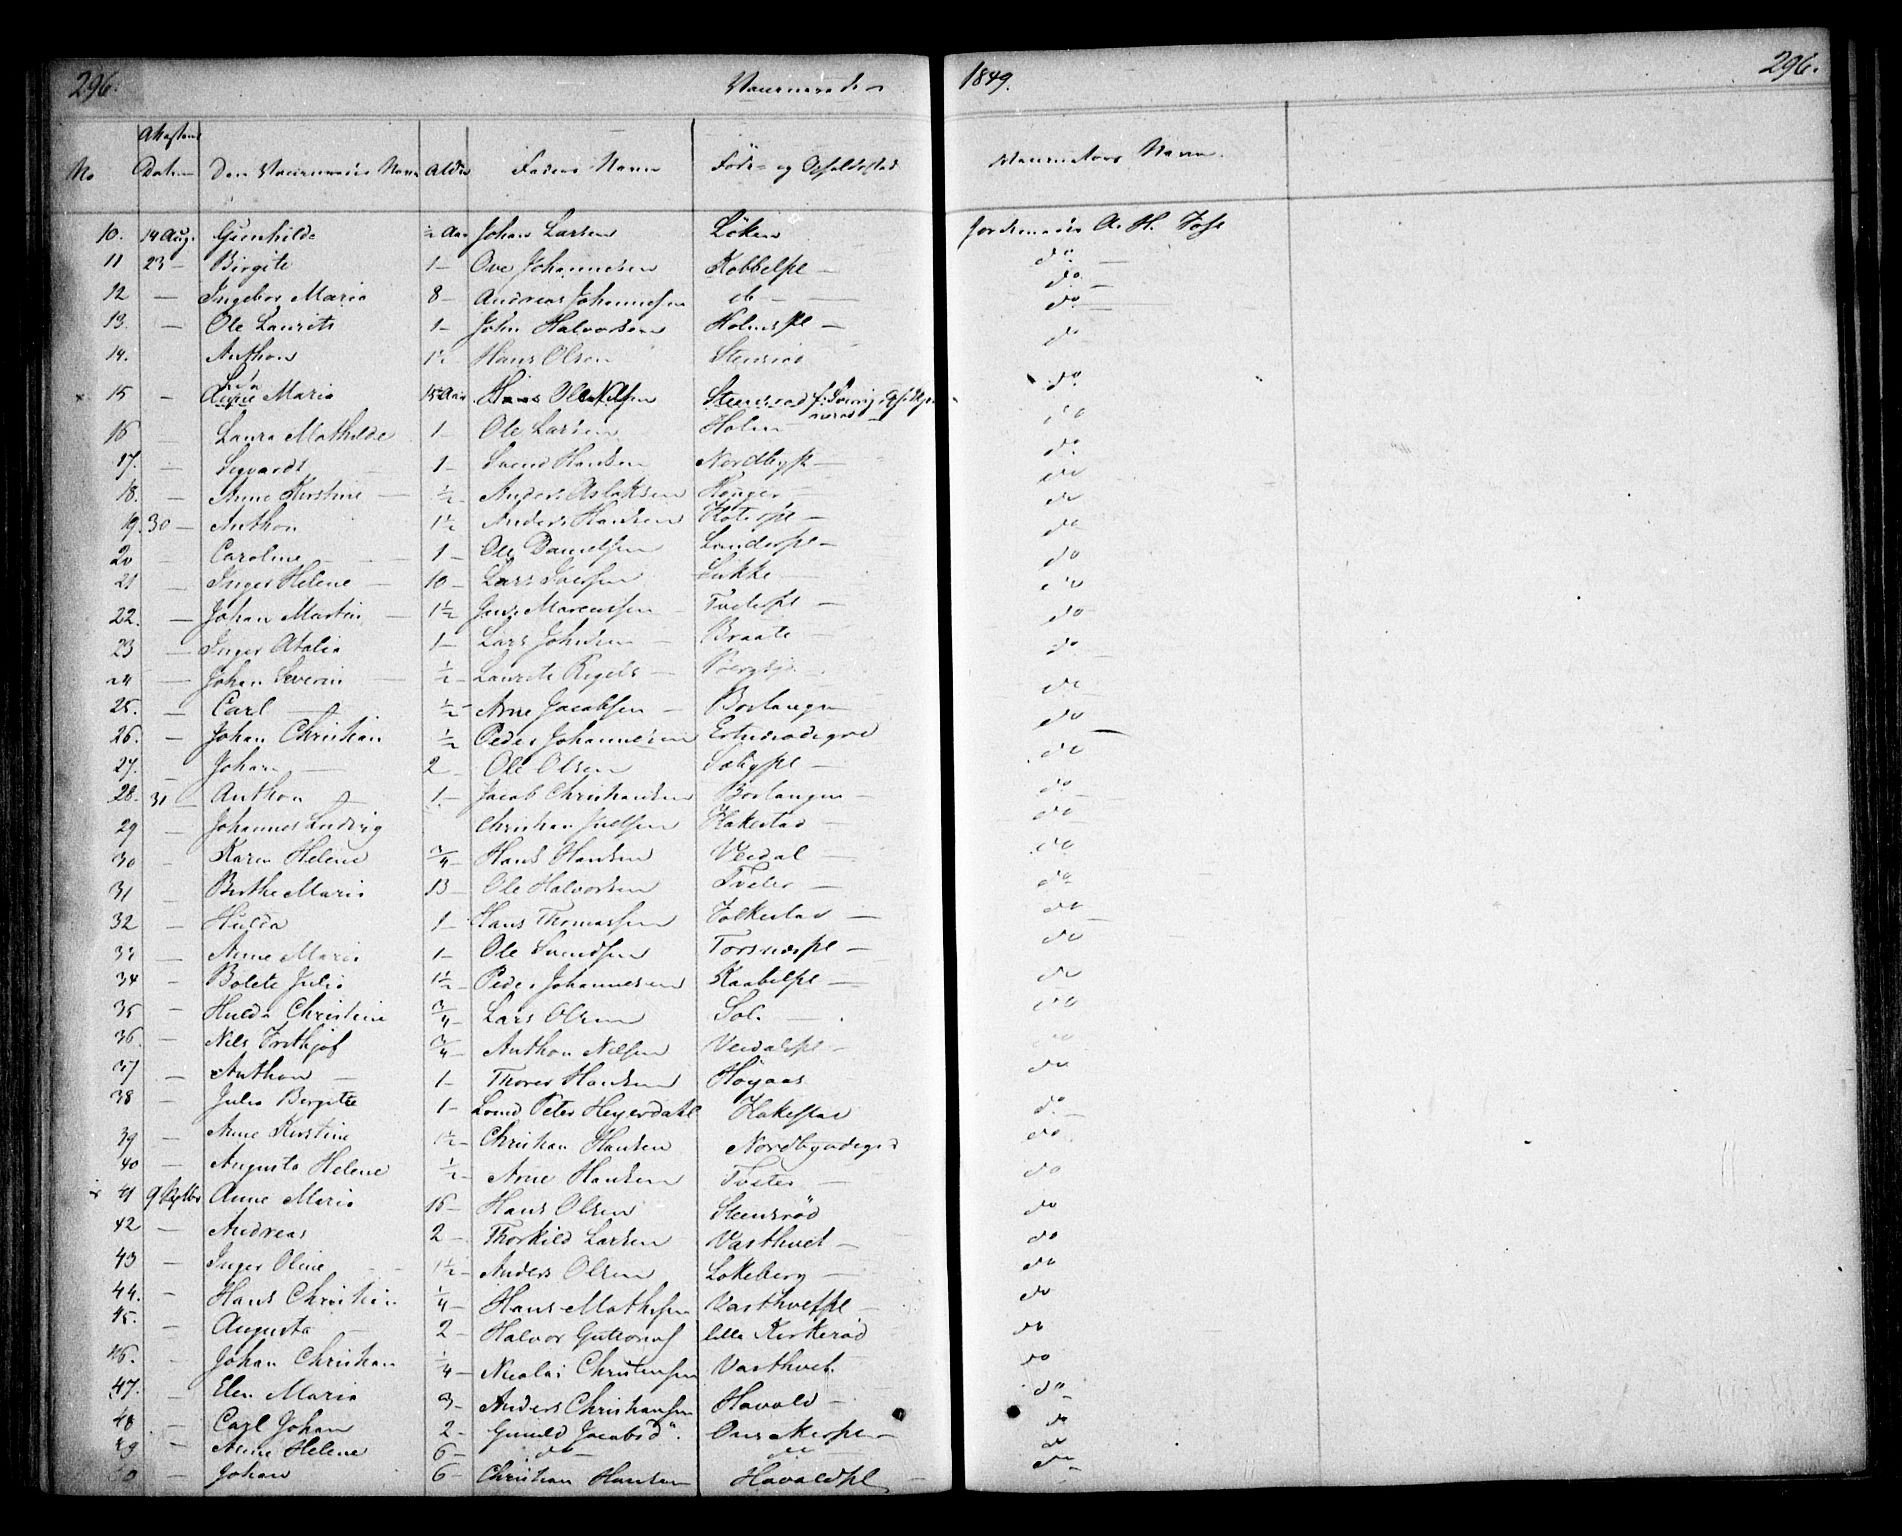 296. Vaccinerede 1849. 296.
No Attestens Datum Den Vaccineredes Navn Alder Faders Navn Føde- og Opholdssted Vaccinators Navn.
10. 14 Aug. Gunhilde ½ Aar Johan Larsen Løken Jordemoder A. H.
11 23 - Birgite 1 - Ove Johannesen Kobbelpl - do
12 - Ingebor Maria 8 - Andreas Johannesen do - do
13. - Ole Laurits 1 - John Halvorsen Holmepl - do
14. Anthon 1½ Hans Olsen Stensrød do
15 - Anne Maria 15½ Aar Stensrød do
16 - Laura Mathilde 1 - Ole Larsen Holm do
17. - Sigvardt 1 - Svend Hansen Nordbypl - do
18. - Anne Kirstine - ½ - Anders Aslaksen Houger - do
19. 30 - Anthon 1½ Anders Hansen - do
20 - Caroline - 1 - Ole Danielsen - do
21 - Inger Helene - 10 - Lars Lukke do
22. - Johan Martin - 1½ Jens Marcussen - Tveterpl - do
23 - Inger Atalia 1 - Lars Johnsen - Braate - do
24 - Johan Severin - ½ - Laurits - do
25. - Carl - ½ - Arne Jacobsen - Borlangen do
26. - Johan Christian ½ Peder Johannesen do
27. - Johan - 2 - Ole Olsen Sæbypl - do
28. 31 - Anthon - 1 - Jacob Christiansen Borlangen - do
29 - Johannes Ludvig Christian Juelsen Hakestad - do
30 - Karen Helene ¾ - Hans Hansen Veidal - do
31 - Berthe Maria 13 - Ole Halvorsen Tveter - do
32 - Hulda 1 - Hans Thomassen Folkestad - do
33 - Anne Maria 1 - Ole Svendsen Torsnæspl - do
34 - Bolete Julia 1½ - Peder Johannesen Kaabelpl - do
35 - Hulda Christine ¾ - Lars Olsen Sol. - do
36. - Nils Frithjof ¾ - Anthon Nilsen Veidalpl - do
37 - Anthon - 1 - Thorer Hansen Høyaas do
38 - Julia Birgitte 1 - Peter Heyerdahl Hakestad do
39 - Anne Kirstine 1½ - Christian Hansen do
40 - Augusta Helene ½ - Arne Hansen Tveter - do
41 9 Septbr Anne Maria 16 - Hans Olsen Stensrød do
42 - Andreas 2 - Thorkild Larsen Vasthvet - do
43 - Inger Oline - 1½ - Anders Olsen Lokeberg - do
44. - Hans Christian ¼ - Hans Mathisen Vasthvetpl - do
45. - Augusta - 2 - Halvor Guttorms lille Kirkerød do
46. - Johan Christian ¼ - Nicolai Christensen Vasthvet. do
47. - Elen Maria 3 - Anders Christiansen Havold - do
48 - Carl Johan 2 - Gunild Jacobsd. do
49 - Anne Helene 6 - do - do do
50 - Johan 6 - Christian Hansen Havoldpl - do